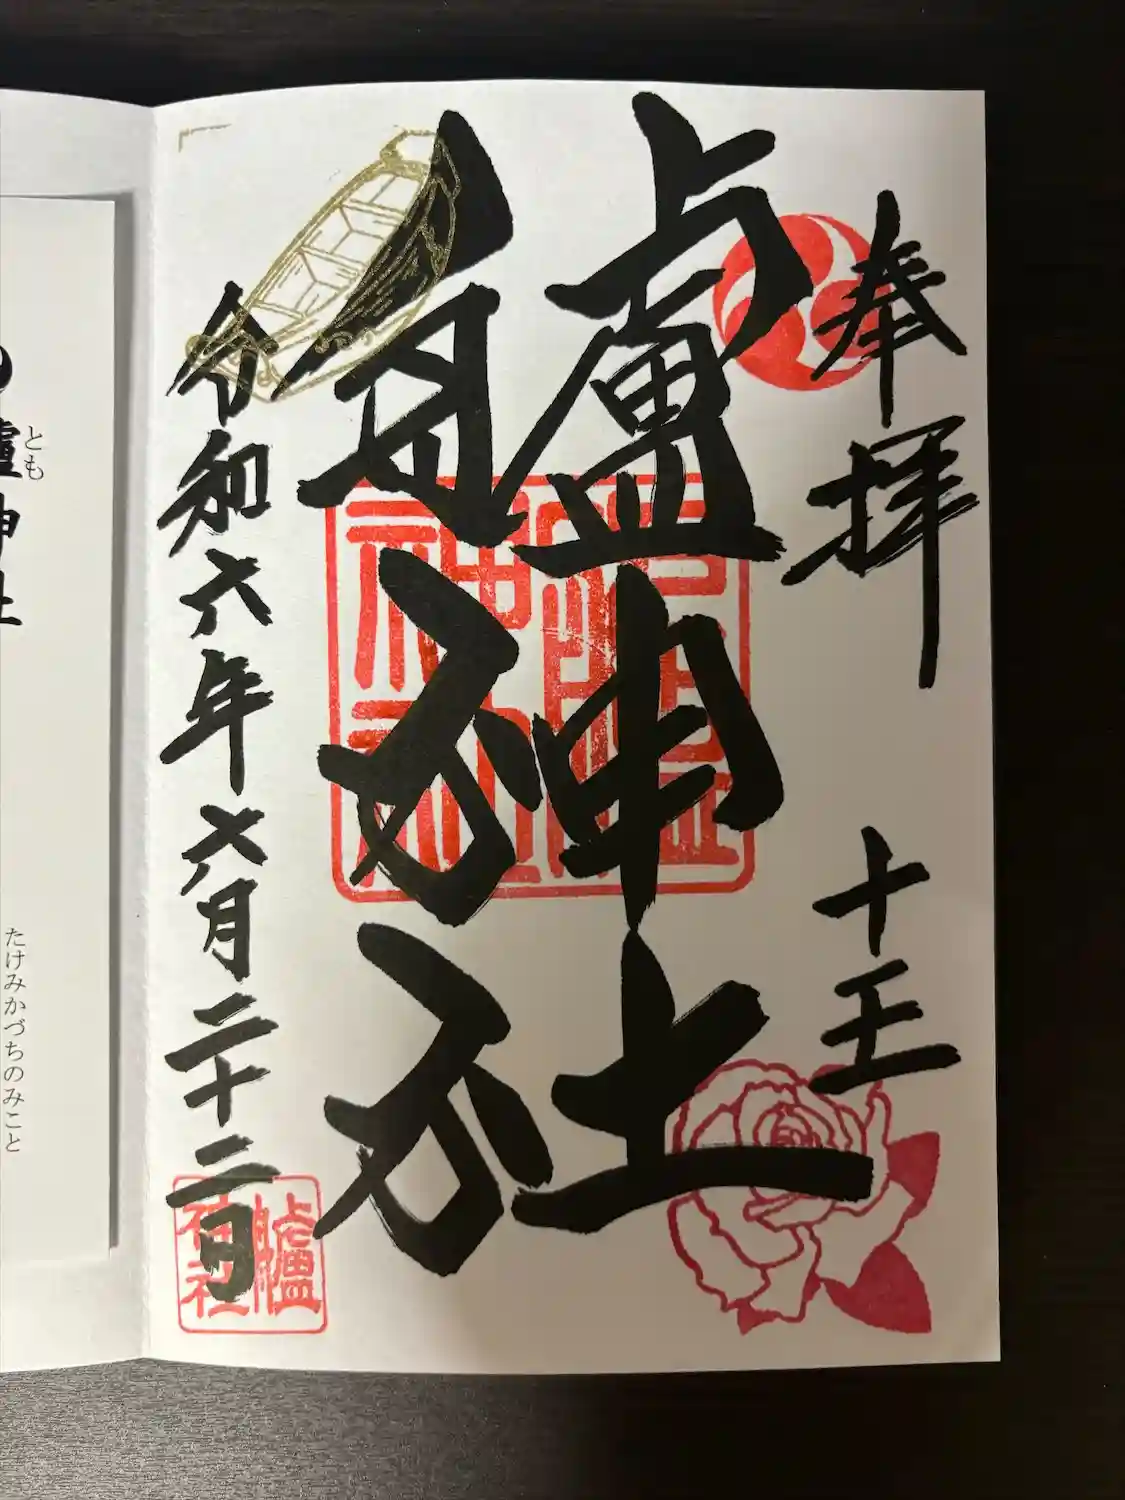 奉拝
十王
艫神社
令和六年六月二十二日
艫
神社
とも
艫神社
たけみかづちのみこと